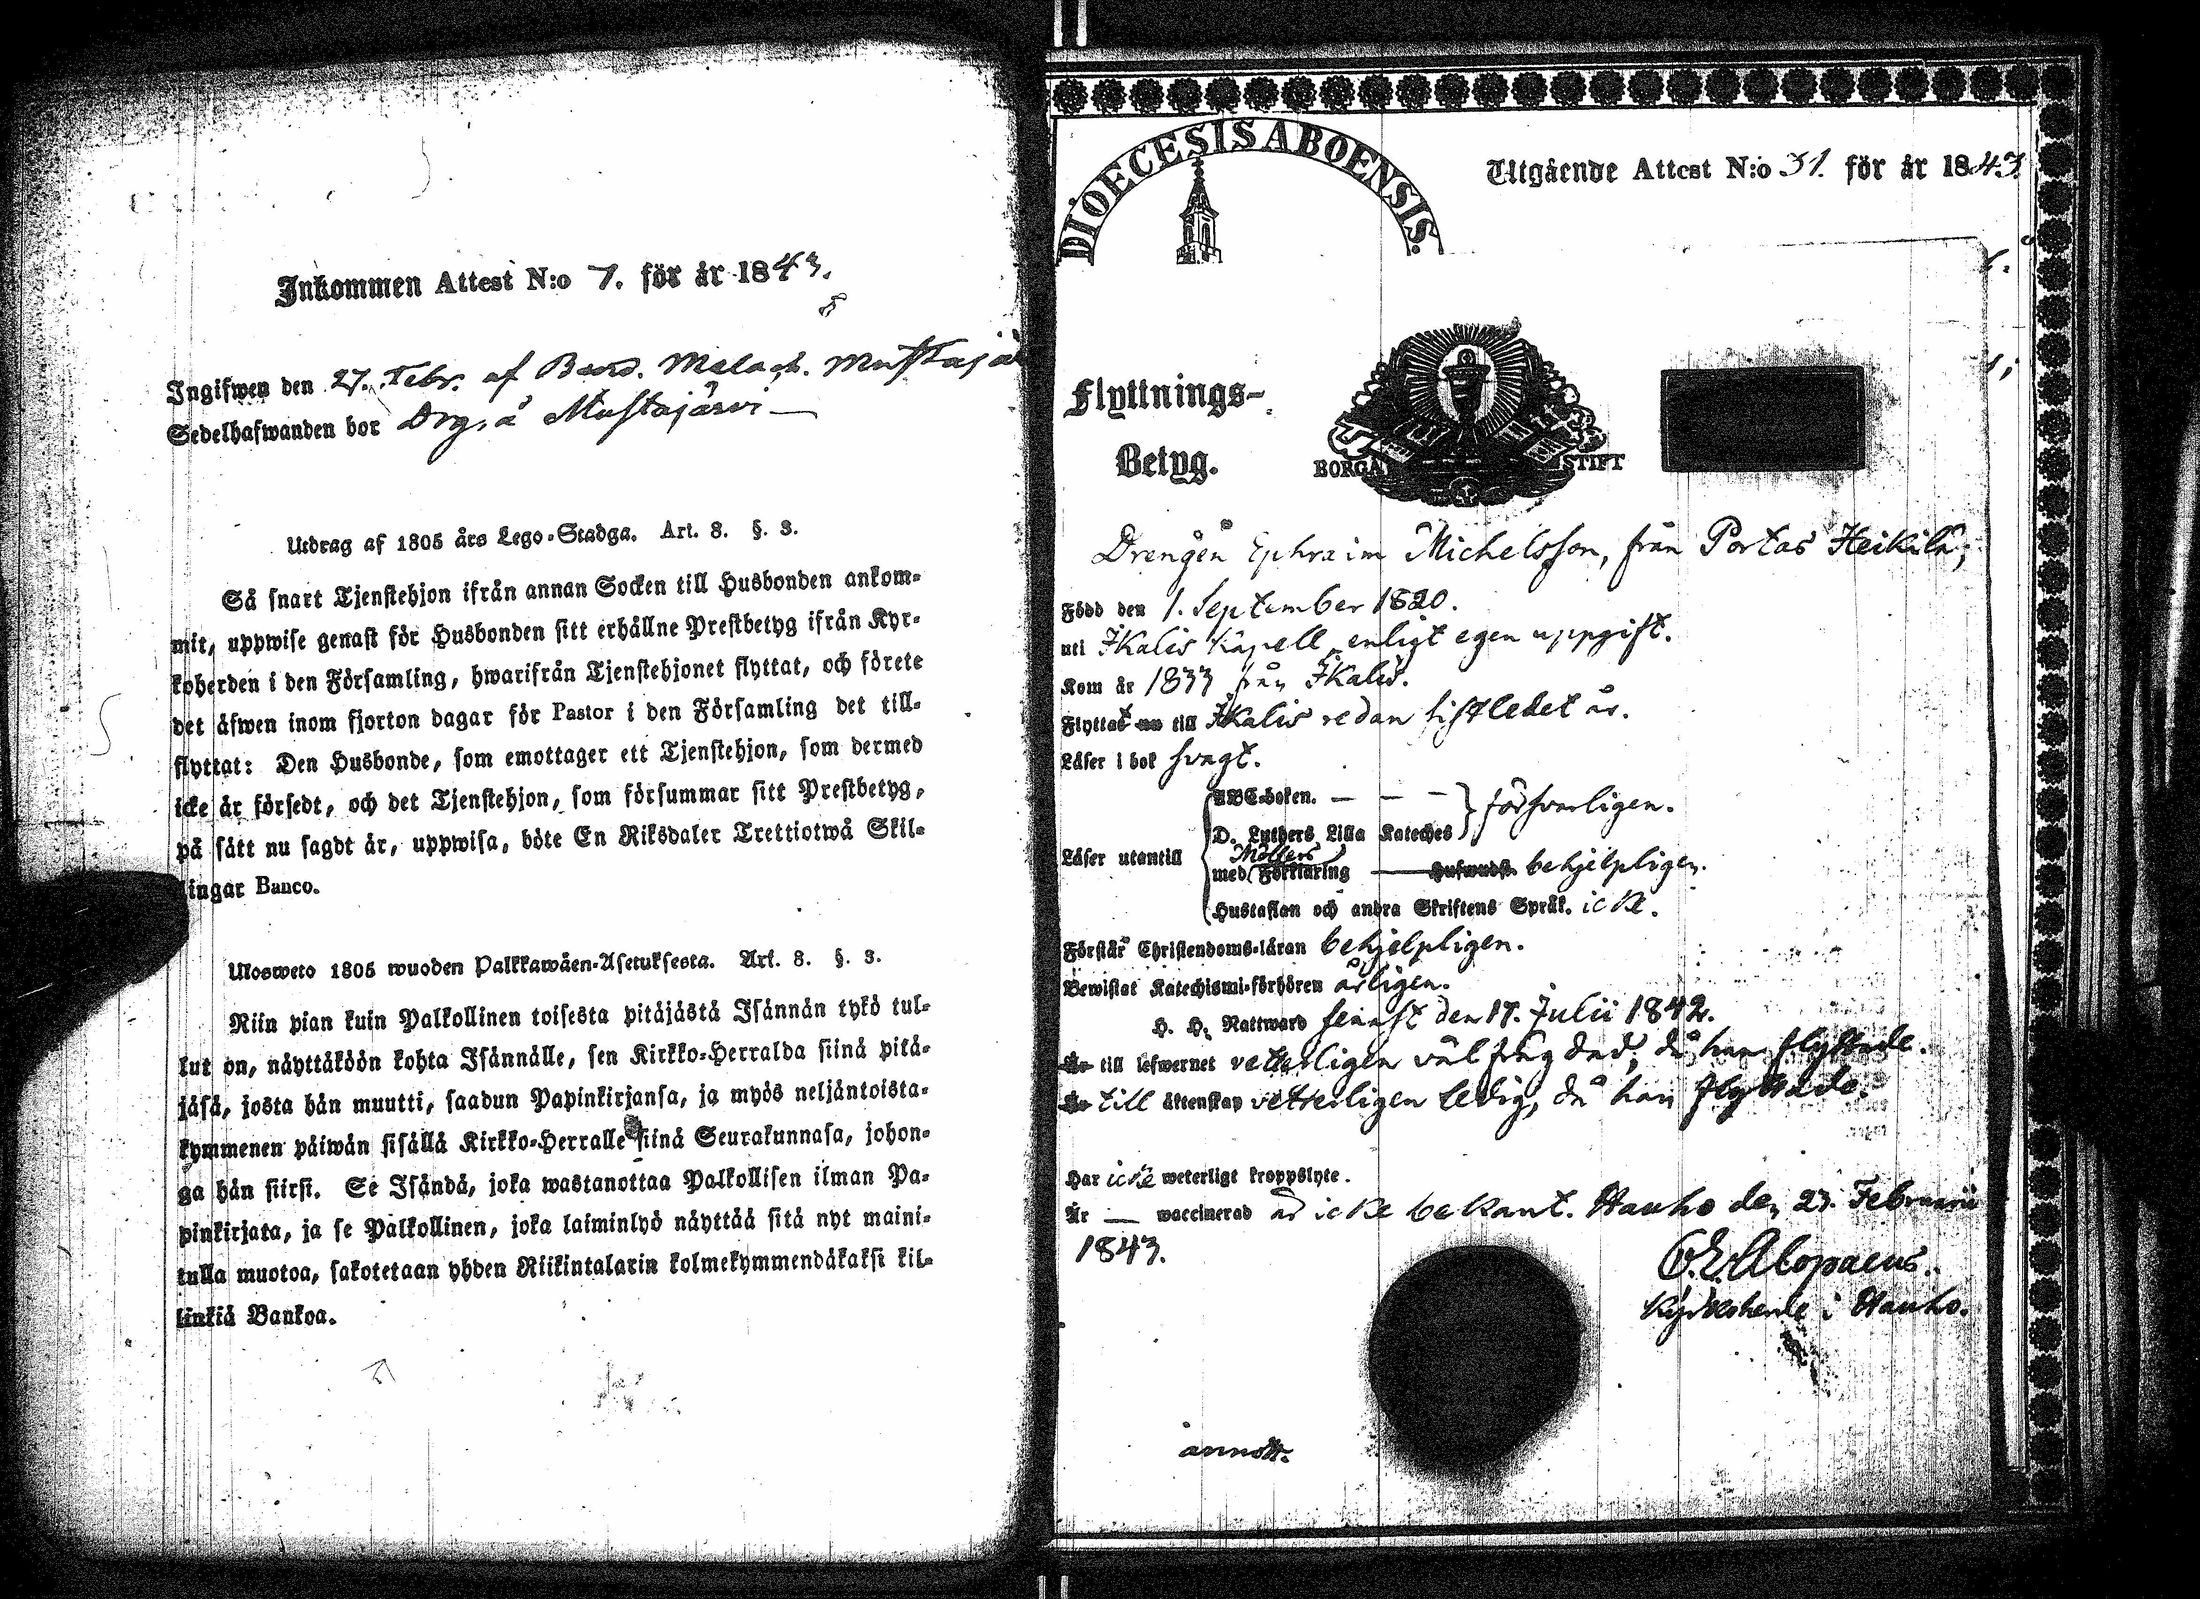 Inkommen Attest N:o 7. för år 1843.
Ingifwen den 27. Febr. af Bond. Malach. Mustajä
Sedelhafwanden bor Drg. å Mustajärvi
Utdrag af 1805 års Lego-Stadga. Art. 8. §. 3.
Så snart Tjenstehjon ifrån annan Socken till Husbonden ankom-
mit, uppwise genast för Husbonden sitt erhållne Prestbetyg ifrån Kyr-
koherden i den Församling, hwarifrån Tjenstehjonet flyttat, och förete
det äfwen inom fjorton dagar för Pastor i den Församling det till-
flyttat: Den Husbonde, som emottager ett Tjenstehjon, som dermed
icke är försedt, och det Tjenstehjon, som försummar sitt Prestbetyg,
på sätt nu sagdt är, uppwisa, böte En Riksdaler Trettiotwå Skil-
lingar Banco.
Ulosweto 1805 wuoden Palkkawäen-Asetuksesta. Art. 8. §. 3.
Niin pian kuin Palkollinen toisesta pitäjästä Isännän tykö tul-
lut on, näyttäköön kohta Isännälle, sen Kirkko-Herralda siinä pitä-
jäsä, josta hän muutti, saadun Papinkirjansa, ja myös neljäntoista-
kymmenen päiwän sisällä Kirkko-Herralle siinä Seurakunnasa, johon-
ga hän siirsi. Se Isändä, joka wastanottaa Palkollisen ilman Pa-
pinkirjata, ja se Palkollinen, joka laiminlyö näyttää sitä nyt maini-
tulla muotoa, sakotetaan yhden Riikintalarin kolmekymmendäkaksi kil-
linkiä Bankoa.
DIOECESIS ABOENSIS.
Utgående Attest N:o 31. för år 1843.
Flyttnings-
Betyg.
BORGÅ STIFT
Drengen Ephraim Michelsson, från Portas Heikilä,
Född den 1. September 1820.
uti Ikalis Kapell enligt egen uppgift.
Kom år 1833 från Ikalis.
Flyttat nu till Ikalis redan sistledet år.
Läser i bok svagt.
ABC-boken. — — — försvarligen.
D. Luthers Lilla Kateches
Läser utantill
Möllers
med Förklaring — Hufwudst. behjelpligen.
Hustaflan och andra Skriftens Språk. icke.
Förstår Christendoms-läran behjelpligen.
Bewistat Katechismi-förhören årligen.
H. H. Nattward senast den 17. Julii 1842.
Är till lefwernet vetterligen välfrägdad, då han flyttade.
Är till äktenskap vetterligen ledig, då han flyttade.
Har icke weterligt kroppslyte.
Är — waccinerad är icke bekant. Hauho den 23. Februarii
1843.
O. E. Alopaeus.
Kyrkoherde i Hauho.
annott.